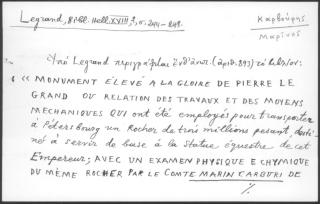 Legrand, Bibl. Hell. XVIII, 2, σ. 244-248.
Καρβούρης
Μαρίνος
Legrand περιγράφεται (ἀριθ. 893) τό
« MONUMENT ÉLEVÉ A LA GLOIRE DE PIERRE LE
GRAND OU RELATION DES TRAVAUX ET DES MOYENS
MECHANIQUES QUI ont été employés pour transporter
à Pétersbourg un Rocher de trois millions pesant, desti
né à servir de base à la statue équestre de cet
Empereur; AVEC UN EXAMEN PHYSIQUE E CHYMIQUE
DU MÊME ROCHER PAR LE COMTE MARIN CARBURI DE
%.